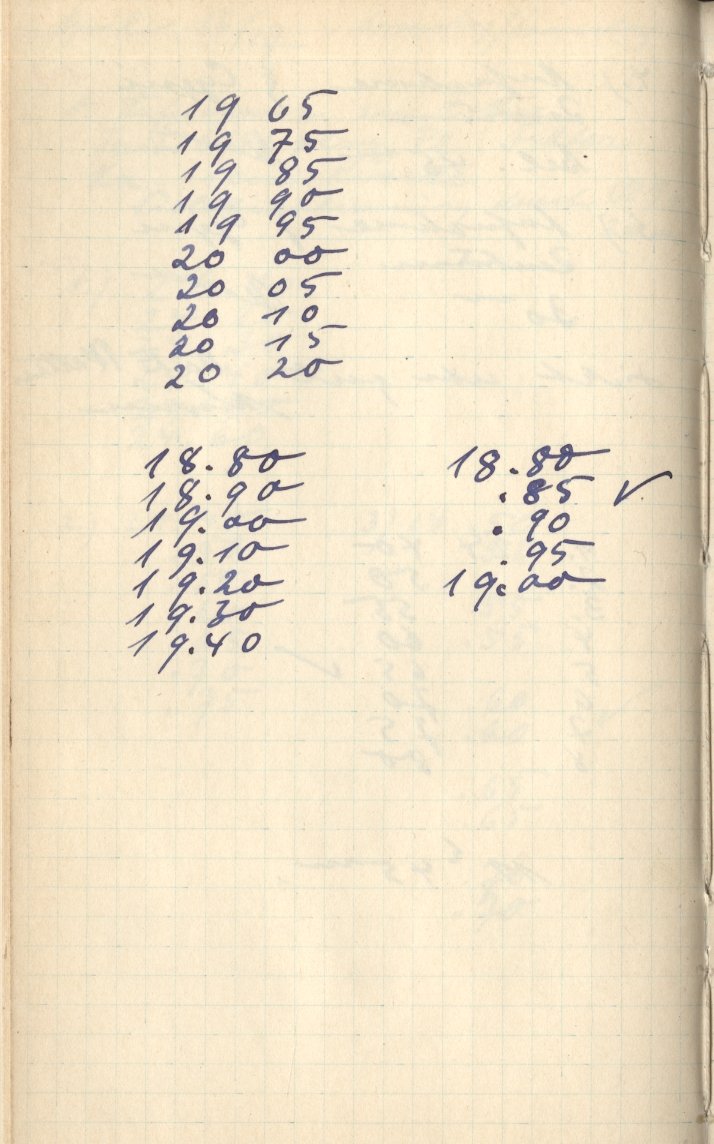 19 65
19 75
19 85
19 90
19 95
20 00
20 05
20 10
20 15
20 20
18.80
18.90
19.00
19.10
19.20
19.30
19.40
18.80
.85 ✓
.90
.95
19.00